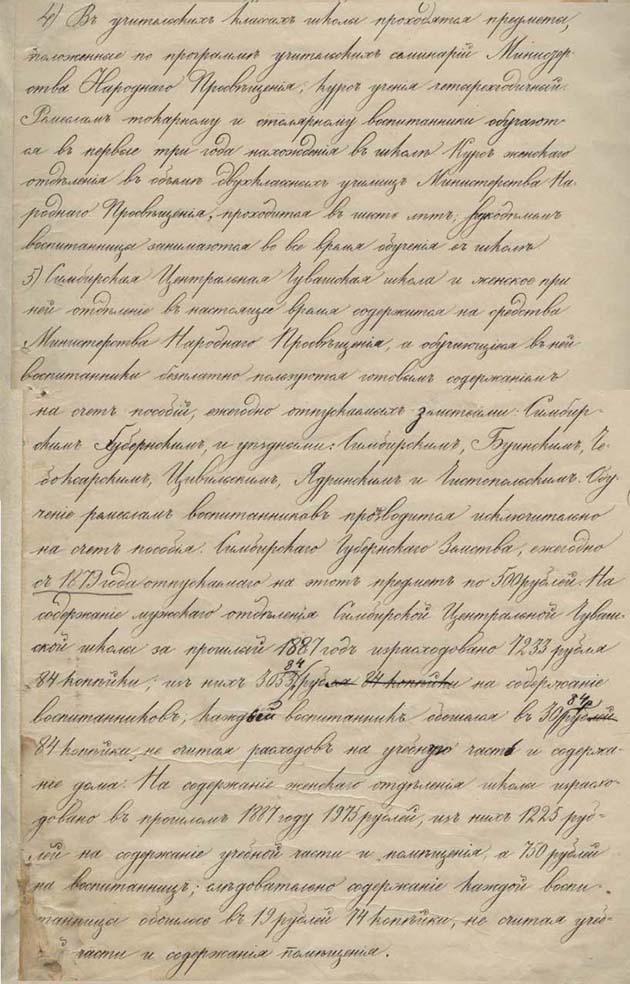 4) Въ учительскихъ классахъ школы проходятся предметы,
положенные по программѣ учительскихъ семинарій Министер
ства Народнаго Просвѣщенія; курсъ ученія четырехгодичный.
Ремесламъ токарному и столярному воспитанники обучают
ся въ первые три года нахожденія въ школѣ. Курсъ женскаго
отдѣленія въ объемѣ двухклассныхъ училищъ Министерства На-
роднаго Просвѣщенія, проходится въ шесть лѣтъ; рукодѣльемъ
воспитанницы занимаются во все время обученія въ школѣ
5) Симбирская Центральная Чувашская школа и женское при
ней отдѣленіе въ настоящее время содержится на средства
Министерства Народнаго Просвѣщенія, а обучающіеся въ ней
воспитанники безплатно пользуются готовымъ содержаніемъ
на счетъ пособій, ежегодно отпускаемыхъ земствами: Симбир-
скимъ Губернскимъ, и уѣздными: Симбирскимъ, Буинскимъ, Че-
боксарскимъ, Цивильскимъ, Ядринскимъ и Чистопольскимъ. Обу-
ченіе ремесламъ воспитанниковъ производится исключительно
на счетъ пособія Симбирскаго Губернскаго Земства, ежегодно
съ 1879 года отпускаемаго на этотъ предметъ по 500 рублей. На
содержаніе мужскаго отдѣленія Симбирской Центральной Чуваш-
ской школы за прошлый 1887 годъ израсходовано 7233 рубля
84 копѣйки; изъ нихъ рубля 84 копѣйки на содержаніе
воспитанниковъ; каждый воспитанникъ обошелся въ 30 рублей
84 копѣйки, не считая расходовъ на учебную часть и содержа-
ніе дома. На содержаніе женскаго отдѣленія школы израсхо-
довано въ прошломъ 1887 году 1975 рублей, изъ нихъ 1225 руб-
лей на содержаніе учебной части и помѣщенія, а 750 рублей
на воспитанницъ; слѣдовательно содержаніе каждой воспи-
танницы обошлось въ 19 рублей 74 копѣйки, не считая учеб-
ной части и содержанія помѣщенія.